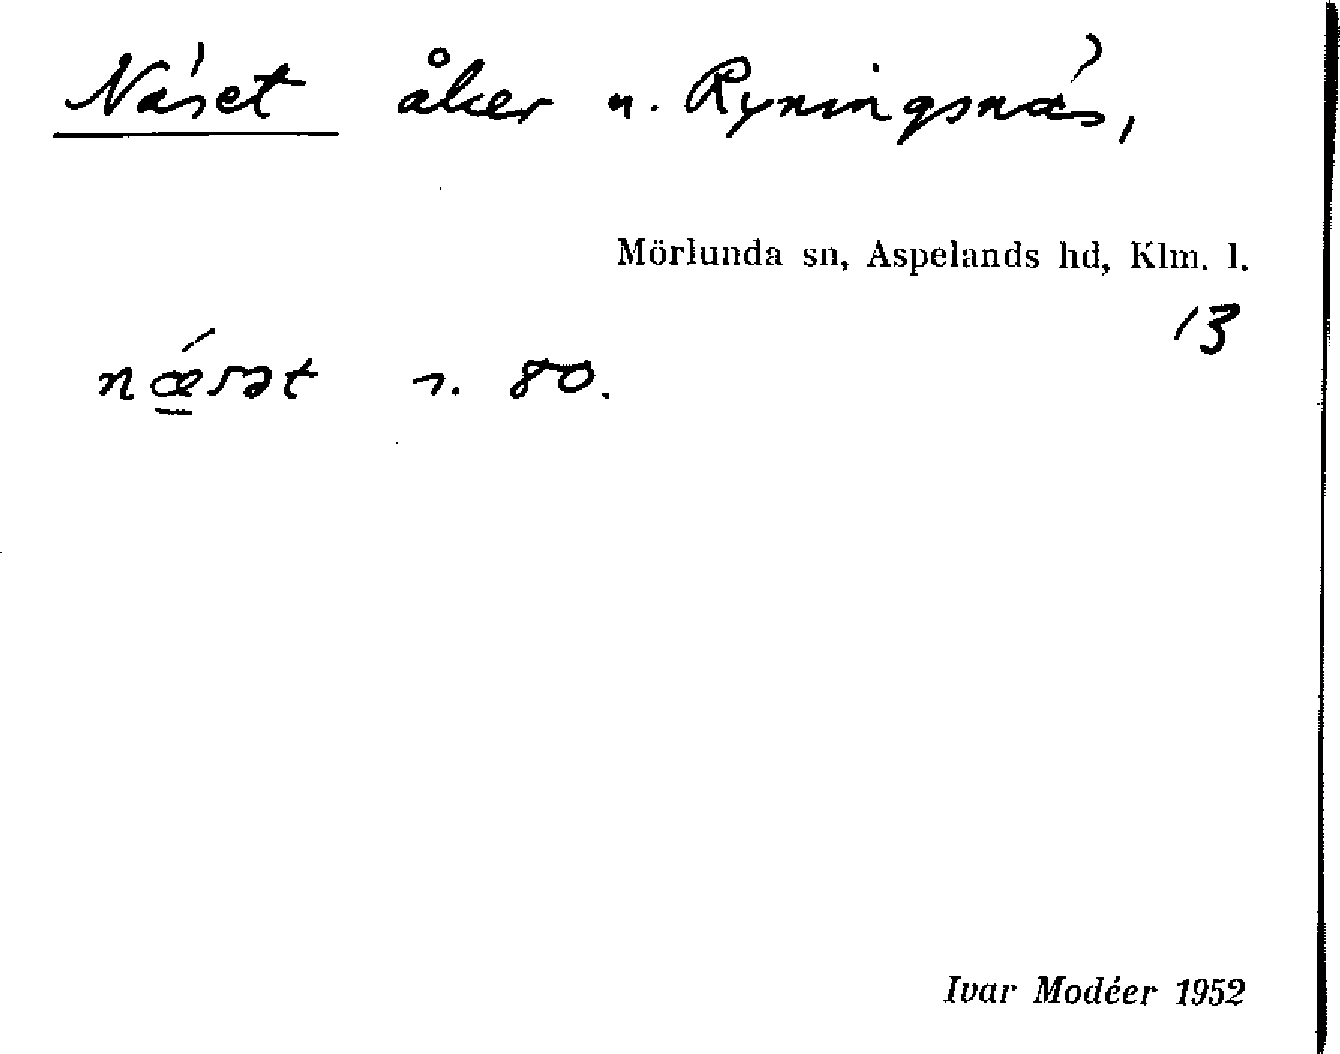 Näset åker u. Ryningsnäs,
Mörlunda sn, Aspelands hd, Klm. l.
13
nǽ̱sət r. 80.
Ivar Modéer 1952